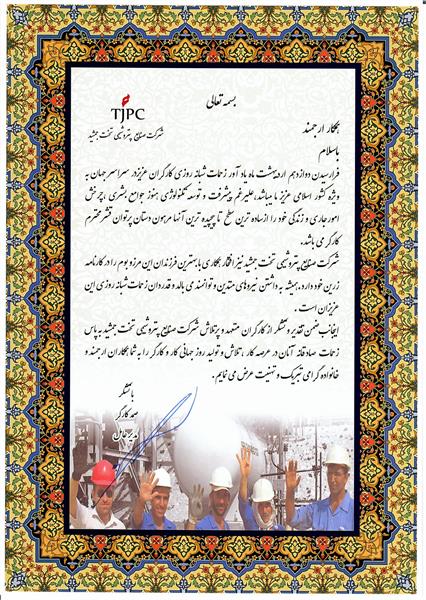 بسمه تعالی
TJPC
شرکت صنایع پتروشیمی تخت جمشید
همکار ارجمند
باسلام
فرارسیدن دوازدهم اردیبهشت ماه یادآور زحمات شبانه روزی کارگران عزیز در سراسر جهان به
ویژه کشور اسلامی عزیز ما میباشد، علیرغم پیشرفت و توسعه تکنولوژی هنوز جوامع بشری، چرخش
امور جاری و زندگی خود را از ساده ترین سطح تا پیچیده ترین آنها مرهون دستان پرتوان قشر محترم
کارگر می باشد.
شرکت صنایع پتروشیمی تخت جمشید نیز افتخار همکاری با بهترین فرزندان این مرز و بوم را در کارنامه
زرین خود دارد، همیشه به داشتن نیروهای متدین و توانمند می بالد و قدردان زحمات شبانه روزی این
عزیزان است.
اینجانب ضمن تقدیر و تشکر از کارگران متعهد و پرتلاش شرکت صنایع پتروشیمی تخت جمشید به پاس
زحمات صادقانه آنان در عرصه کار، تلاش و تولید روز جهانی کار و کارگر را به شما همکاران ارجمند و
خانواده گرامی تبریک و تهنیت عرض می نمایم.
با تشکر
کارگر
مدیرعامل